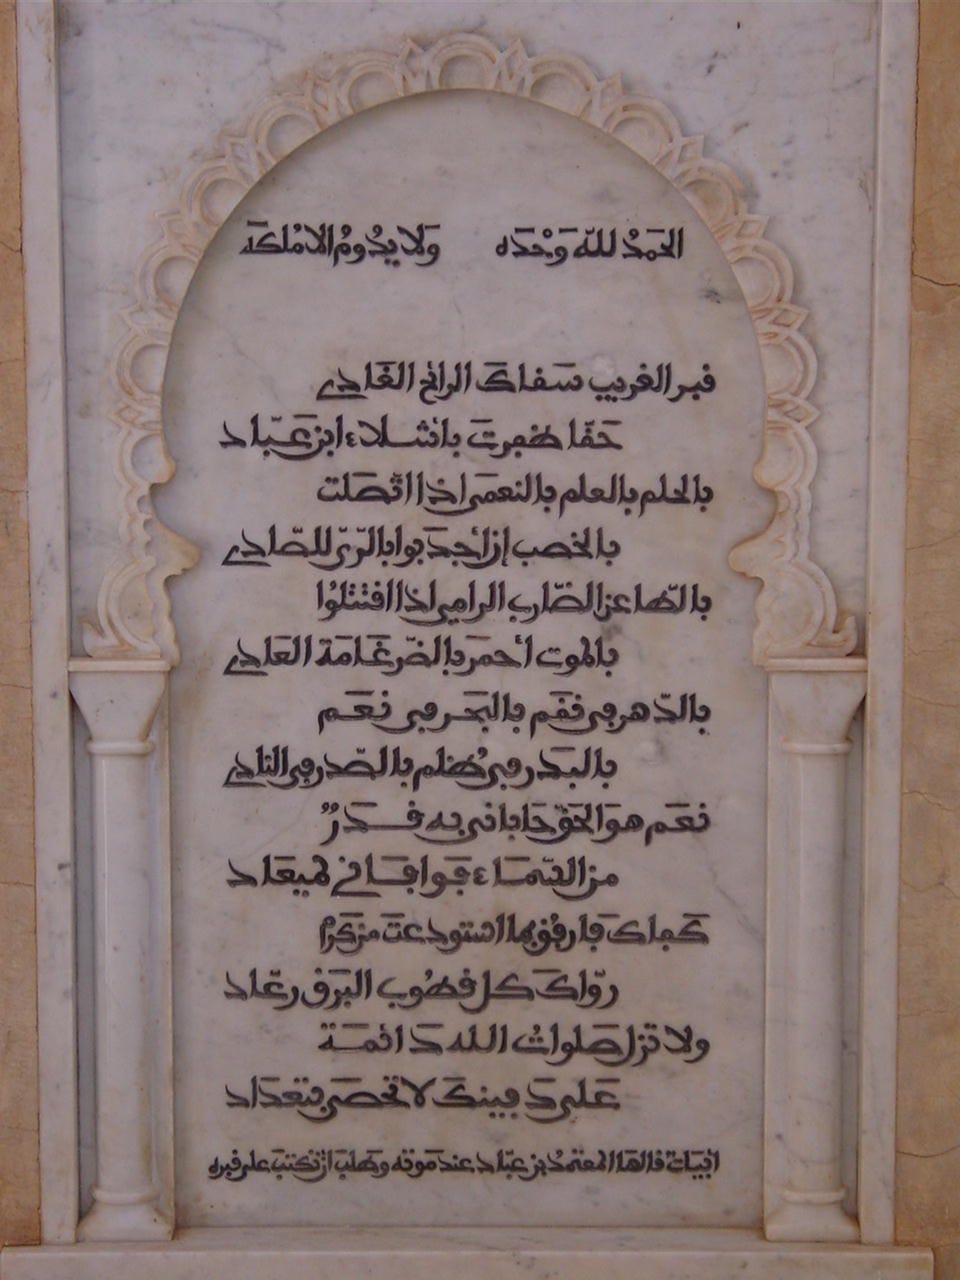 الحَمْدُ لله وَحْدَه وَلا يدُومُ الا مُلكَه
قبر الغريب سَقاكَ الرائح الغَادي
حَقّا ظفرتَ باشلاء ابن عَبّاد
بالحلم بالعلم بالنعمَى اذا اتّصَلت
بالخصب إن أجدَبوا بالرّيّ للصّادي
بالطّاعن الضّارب الرامي اذا اقتتلوُا
بالموت أحمَر بالضّرغَامَة العَادي
بالدّهر في نقَم بالبَحَر في نعَم
بالبَدَر في ظُلم بالصّدَر في النادي
نعَم هوَ الحَقّ حَاباني به قَدَرٌ
من السّمَاء فَوافَاني لميعَاد
كَفاكَ فَارفُق بما استودعتَ من كَرم
روّاكَ كل قطُوب البَرَق رعّاد
ولا تزل صَلواتُ الله دَائمَة
عَلى دَفينكَ لا تحصَى بتعدَاد
ابيات قالهَا المعتمدُ بن عبّاد عندَ موته وطَلبَ ان تكتبَ على قبره